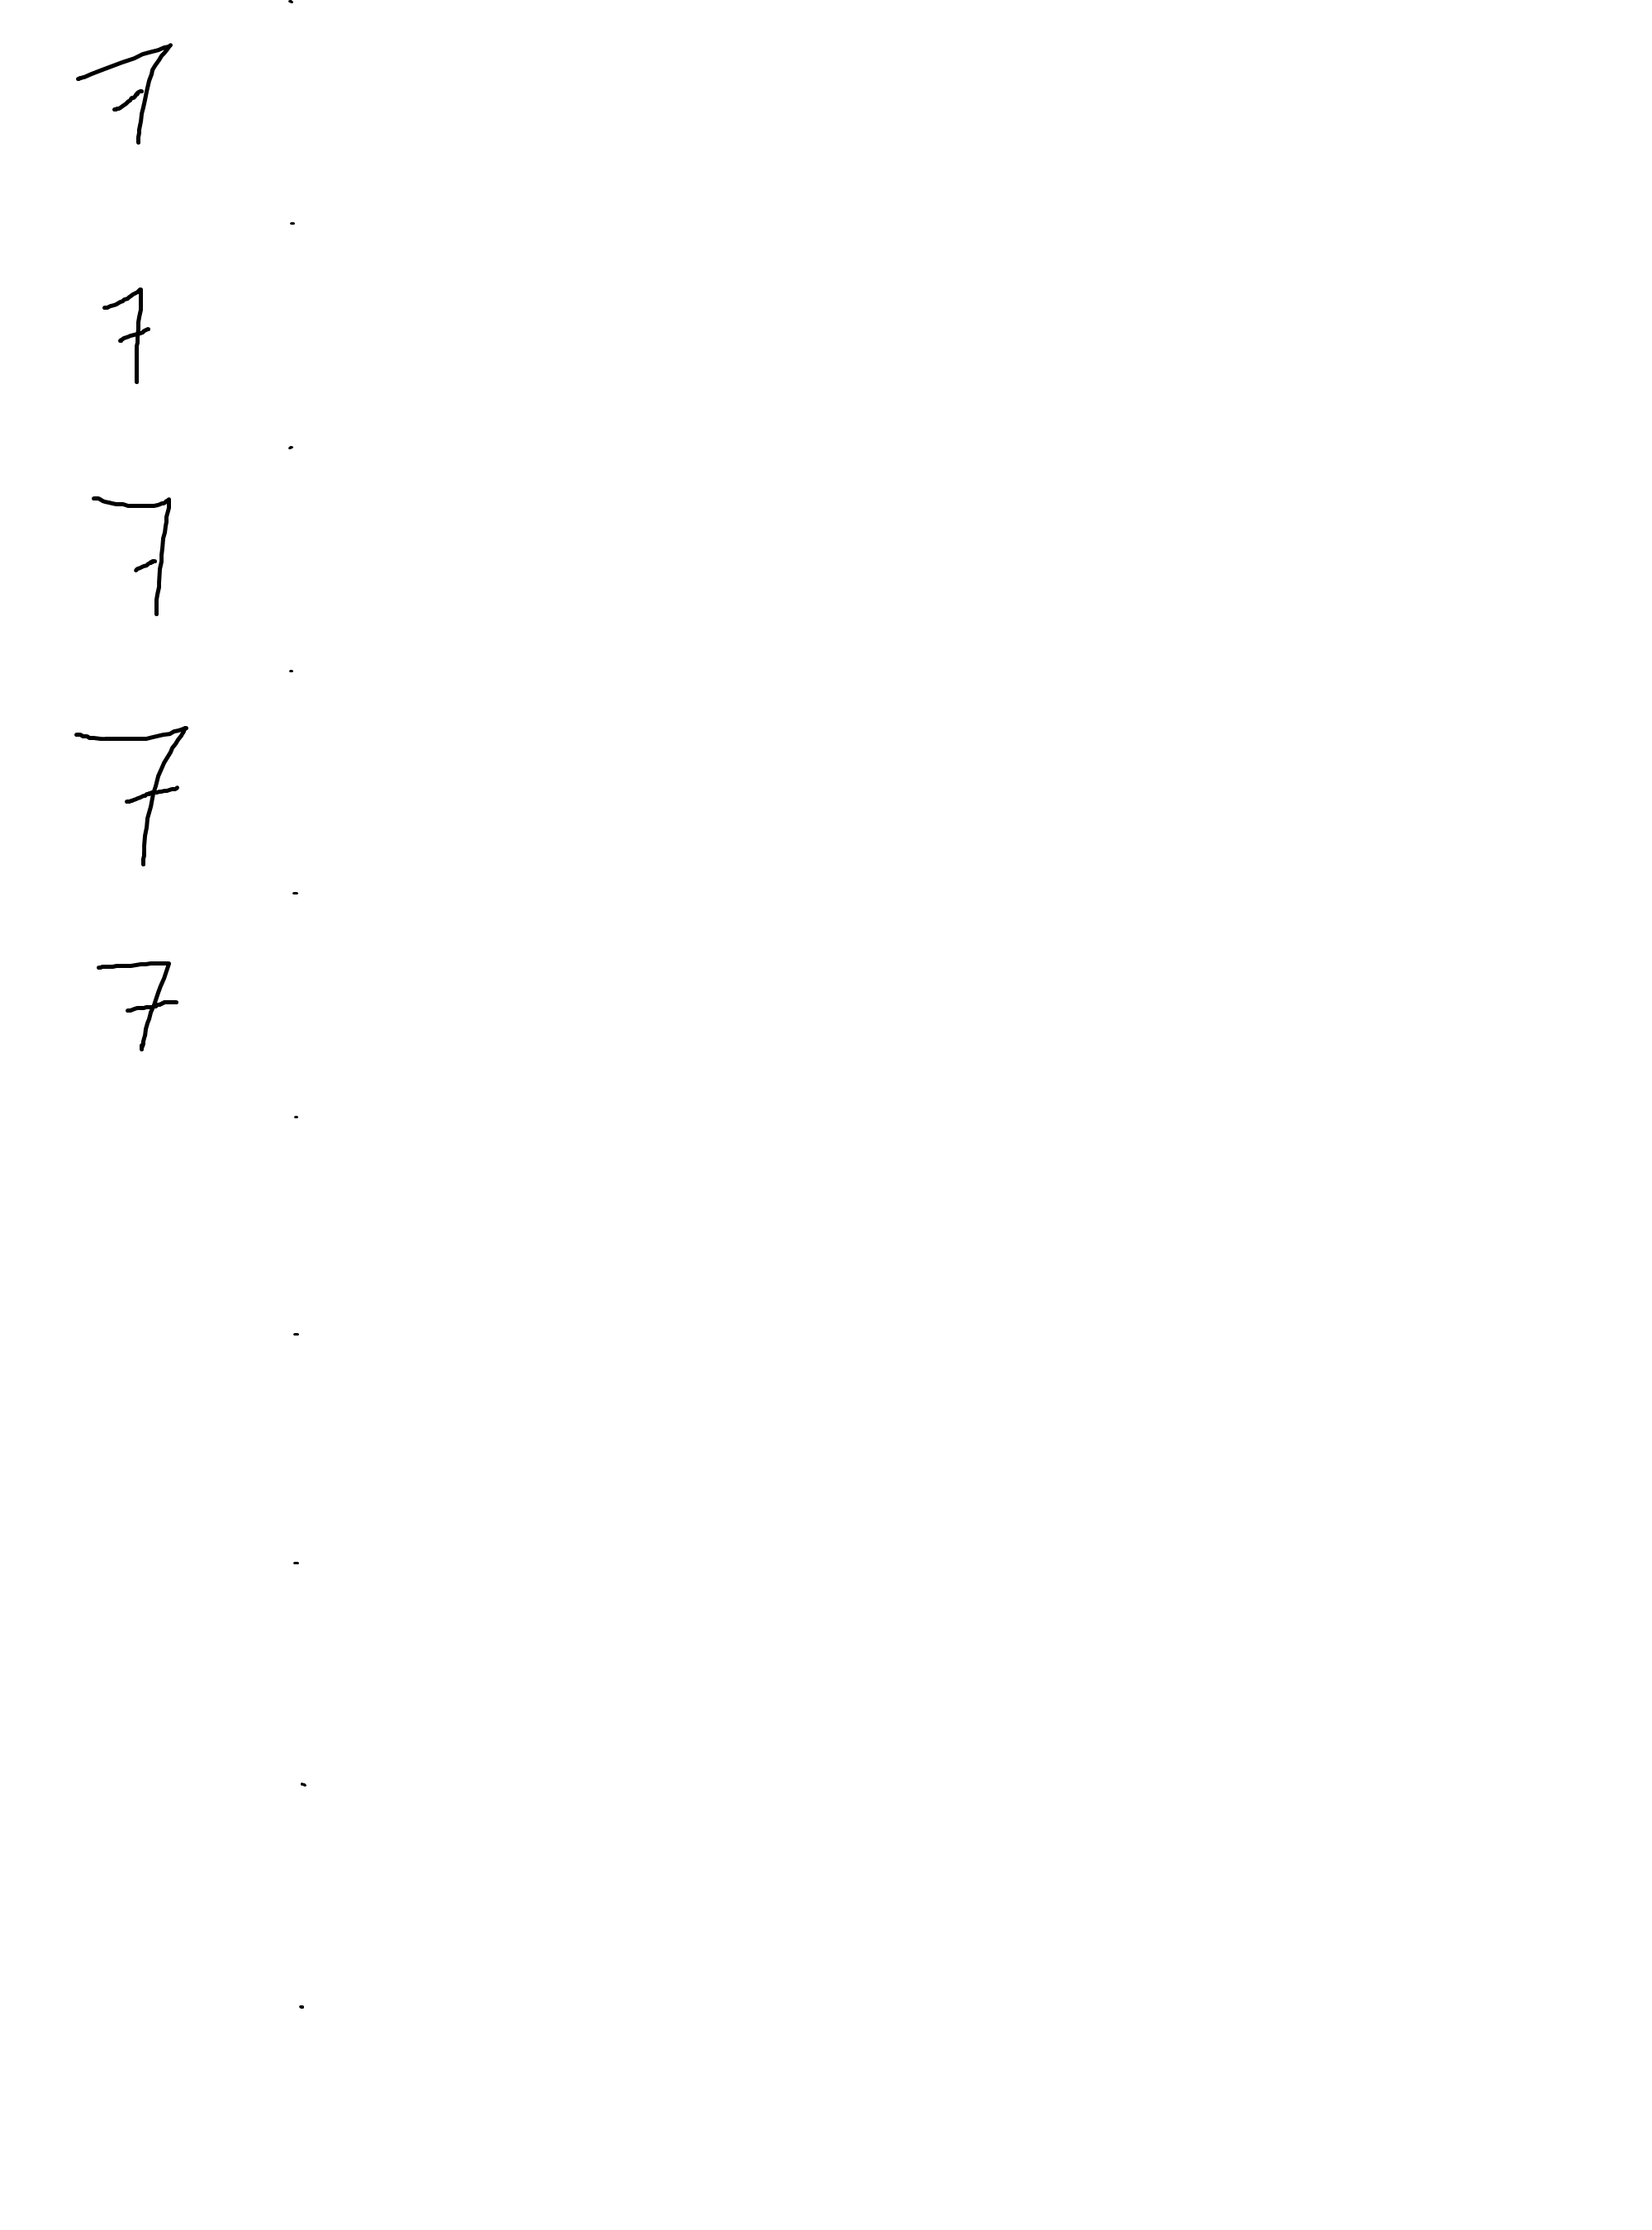 7
7
7
7
7